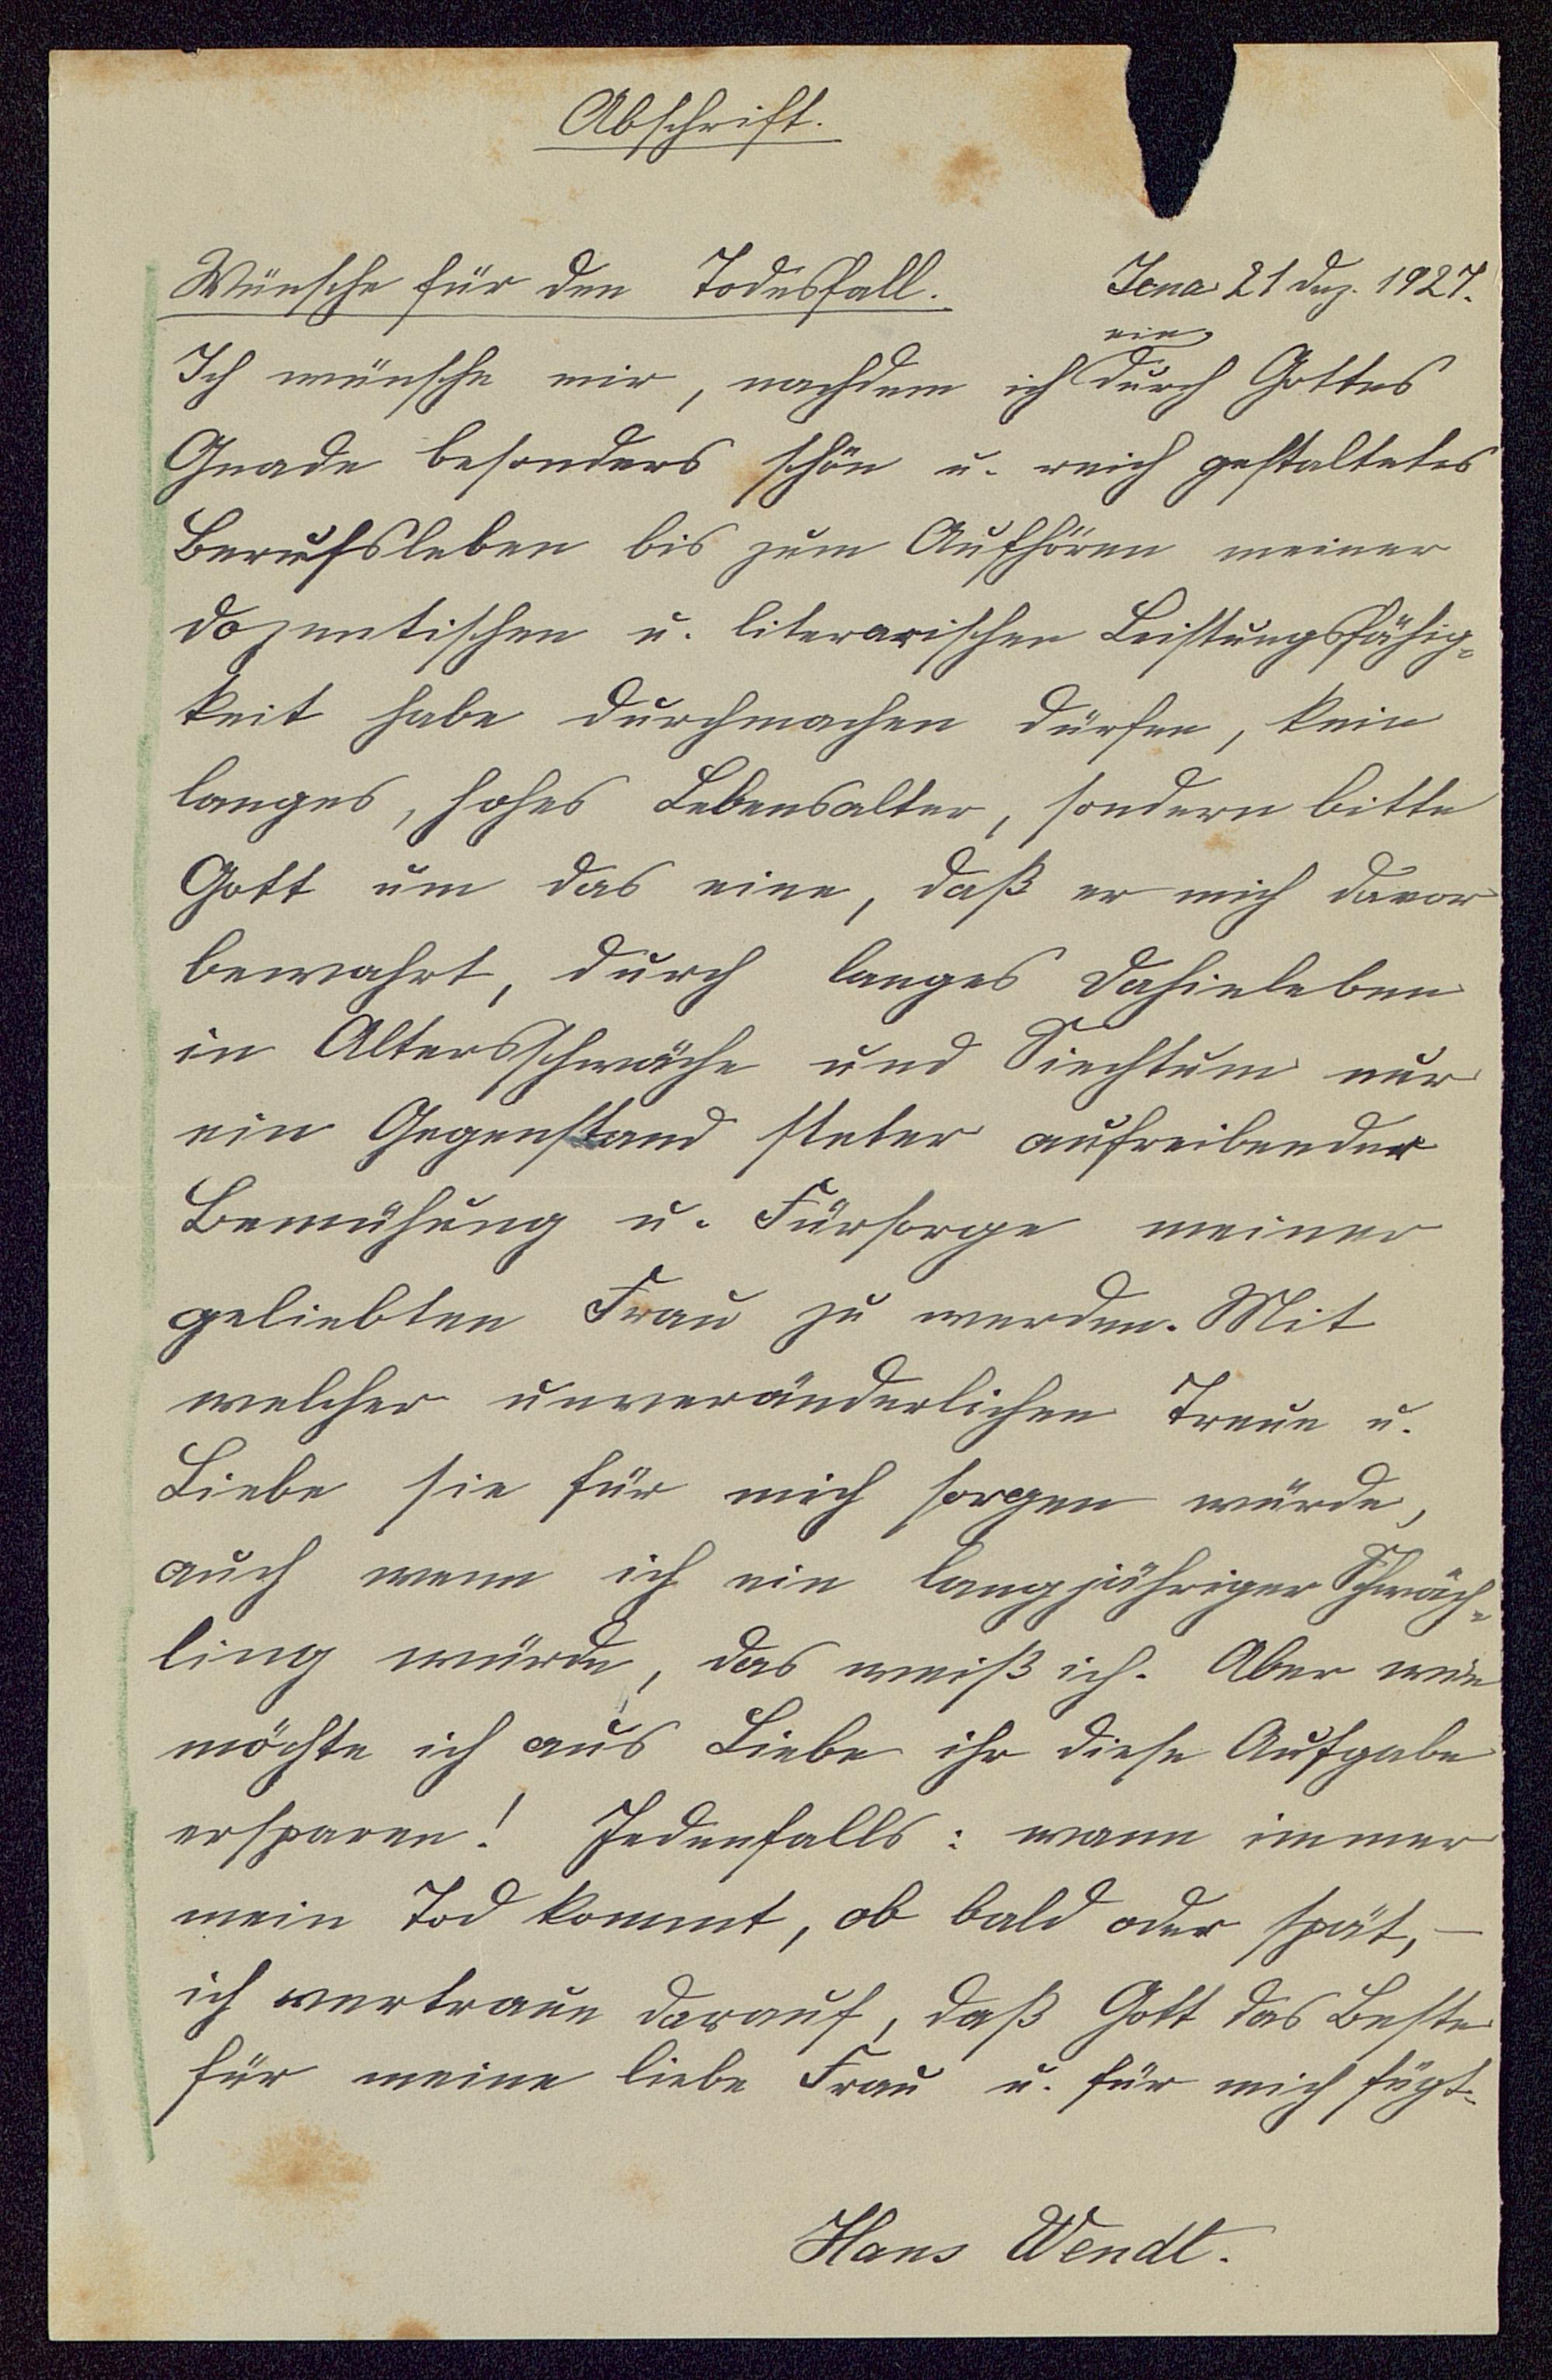 Abschrift.
Wünsche für den Todesfall. Jena 21 Dez. 1927.
ein
Ich wünsche mir, nachdem ich durch Gottes
Gnade besonders schön u. reich gestaltetes
Berufsleben bis zum Aufhören meiner
dozentischen u. literarischen Leistungsfähig-
keit habe durchmachen dürfen, kein
langes, hohes Lebensalter, sondern bitte
Gott um das eine, daß er mich davor
bewahrt, durch langes Dahinleben
in Altersschwäche und Siechtum nur
ein Gegenstand steter aufreibender
Bemühung u. Fürsorge meiner
geliebten Frau zu werden. Mit
welcher unveränderlichen Treue u.
Liebe sie für mich sorgen würde,
auch wenn ich ein langjähriger Schwäch-
ling würde, das weiß ich. Aber wie
möchte ich aus Liebe ihr diese Aufgabe
ersparen! Jedenfalls: wann immer
mein Tod kommt, ob bald oder spät, –
ich vertraue darauf, daß Gott das Beste
für meine liebe Frau u. für mich fügt.
Hans Wendt.